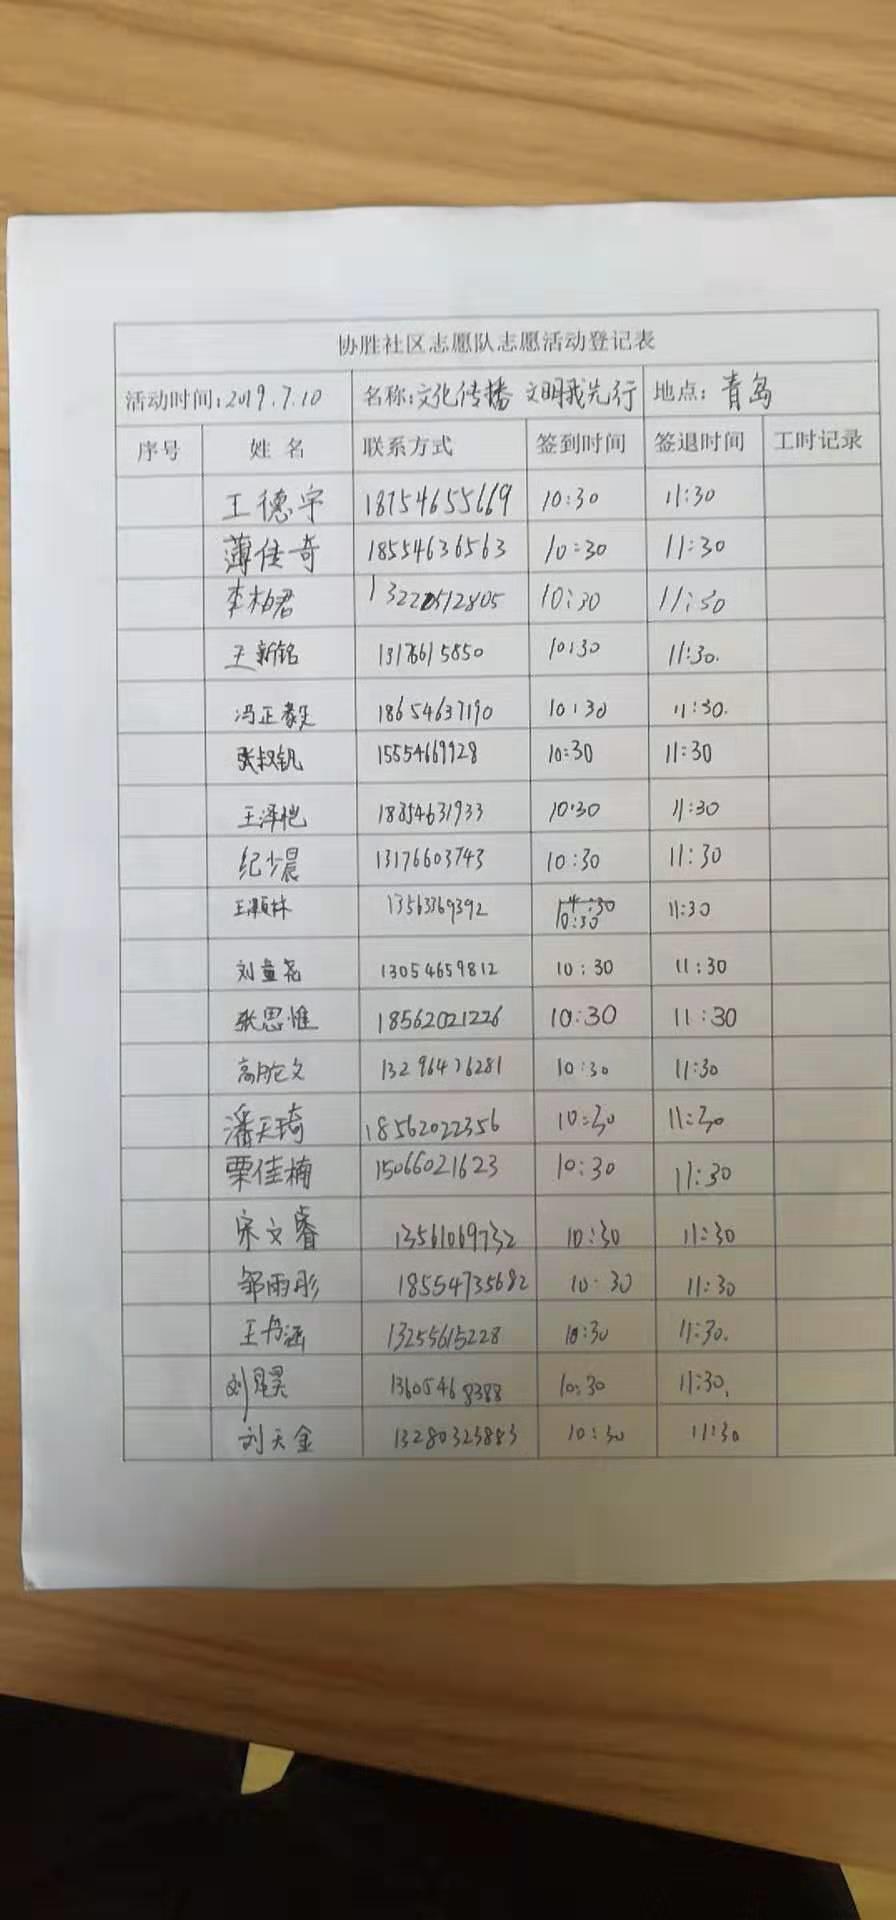 协胜社区志愿队志愿活动登记表
活动时间:2019.7.10 名称:文化传播 文明我先行 地点:青岛
序号 姓名 联系方式 签到时间 签退时间 工时记录
王德宇 18754655669 10:30 11:30
薄佳奇 18554636563 10:30 11:30
李柏君 10:30 11:30
王新铭 13176615850 10:30 11:30.
冯正毅 18654637190 10:30 11:30.
张叔钒 15554669928 10:30 11:30
王泽恺 18854631933 10:30 11:30
纪少晨 13176603743 10:30 11:30
王颢林 13563369392 10:30 11:30
刘童尧 13054659812 10:30 11:30
张思惟 18562021226 10:30 11:30
高 文 13296476281 10:30 11:30
潘天琦 18562022356 10:30 11:30
栗佳楠 15066021623 10:30 11:30
宋文睿 13561069732 10:30 11:30
邹雨彤 18554735682 10:30 11:30
王丹涵 13255615228 10:30 11:30.
刘 昊 13605468388 10:30 11:30.
刘天金 13280325883 10:30 11:30